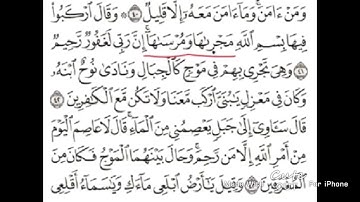 وَمَنْ ءَامَنَ وَمَآ ءَامَنَ مَعَهُۥٓ إِلَّا قَلِيلٌ ۝٤٠ وَقَالَ ٱرْكَبُوا۟
فِيهَا بِسْمِ ٱللَّهِ مَجْر۪ىٰهَا وَمُرْسَىٰهَآ إِنَّ رَبِّى لَغَفُورٌ رَّحِيمٌ
۝٤١ وَهِىَ تَجْرِى بِهِمْ فِى مَوْجٍ كَٱلْجِبَالِ وَنَادَىٰ نُوحٌ ٱبْنَهُۥ
وَكَانَ فِى مَعْزِلٍ يَـٰبُنَىَّ ٱرْكَب مَّعَنَا وَلَا تَكُن مَّعَ ٱلْكَـٰفِرِينَ ۝٤٢
قَالَ سَـَٔاوِىٓ إِلَىٰ جَبَلٍ يَعْصِمُنِى مِنَ ٱلْمَآءِ قَالَ لَا عَاصِمَ ٱلْيَوْمَ
مِنْ أَمْرِ ٱللَّهِ إِلَّا مَن رَّحِمَ وَحَالَ بَيْنَهُمَا ٱلْمَوْجُ فَكَانَ مِنَ
ٱلْمُغْرَقِينَ وَقِيلَ يَـٰٓأَرْضُ ٱبْلَعِى مَآءَكِ وَيَـٰسَمَآءُ أَقْلِعِى
For iPhone